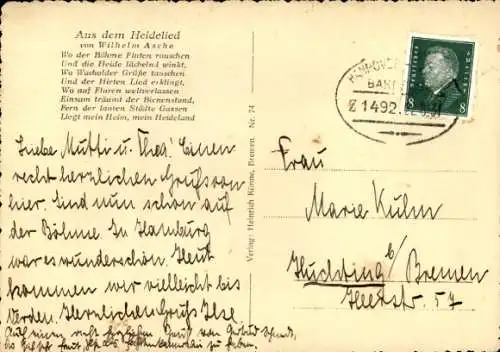 Aus dem Heidelied
von Wilhelm Asche
Wo der Böhme Fluten rauschen
Und die Heide lächelnd winkt,
Wo Wacholder Grüße tauschen
Und der Hirten Lied erklingt.
Wo auf Fluren weltverlassen
Einsam träumt der Bienenstand,
Fern der lauten Städte Gassen
Liegt mein Heim, mein Heideland
Liebe Mutti u. Thea! Einen
recht herzlichen Gruß von
hier. Sind nun schon auf
der Böhme. In Hamburg
war es wunderschön. Heut
kommen wir vielleicht bis
Verden. Herzlichen Gruß Ilse
Auch einen recht herzlichen Gruß von
Verlag: Heinrich Bremen. Nr. 74
HANNOVER
Z 1492
8 8
Frau
Marie Kuhm
Huchting b/ Bremen
Heerstr. 57